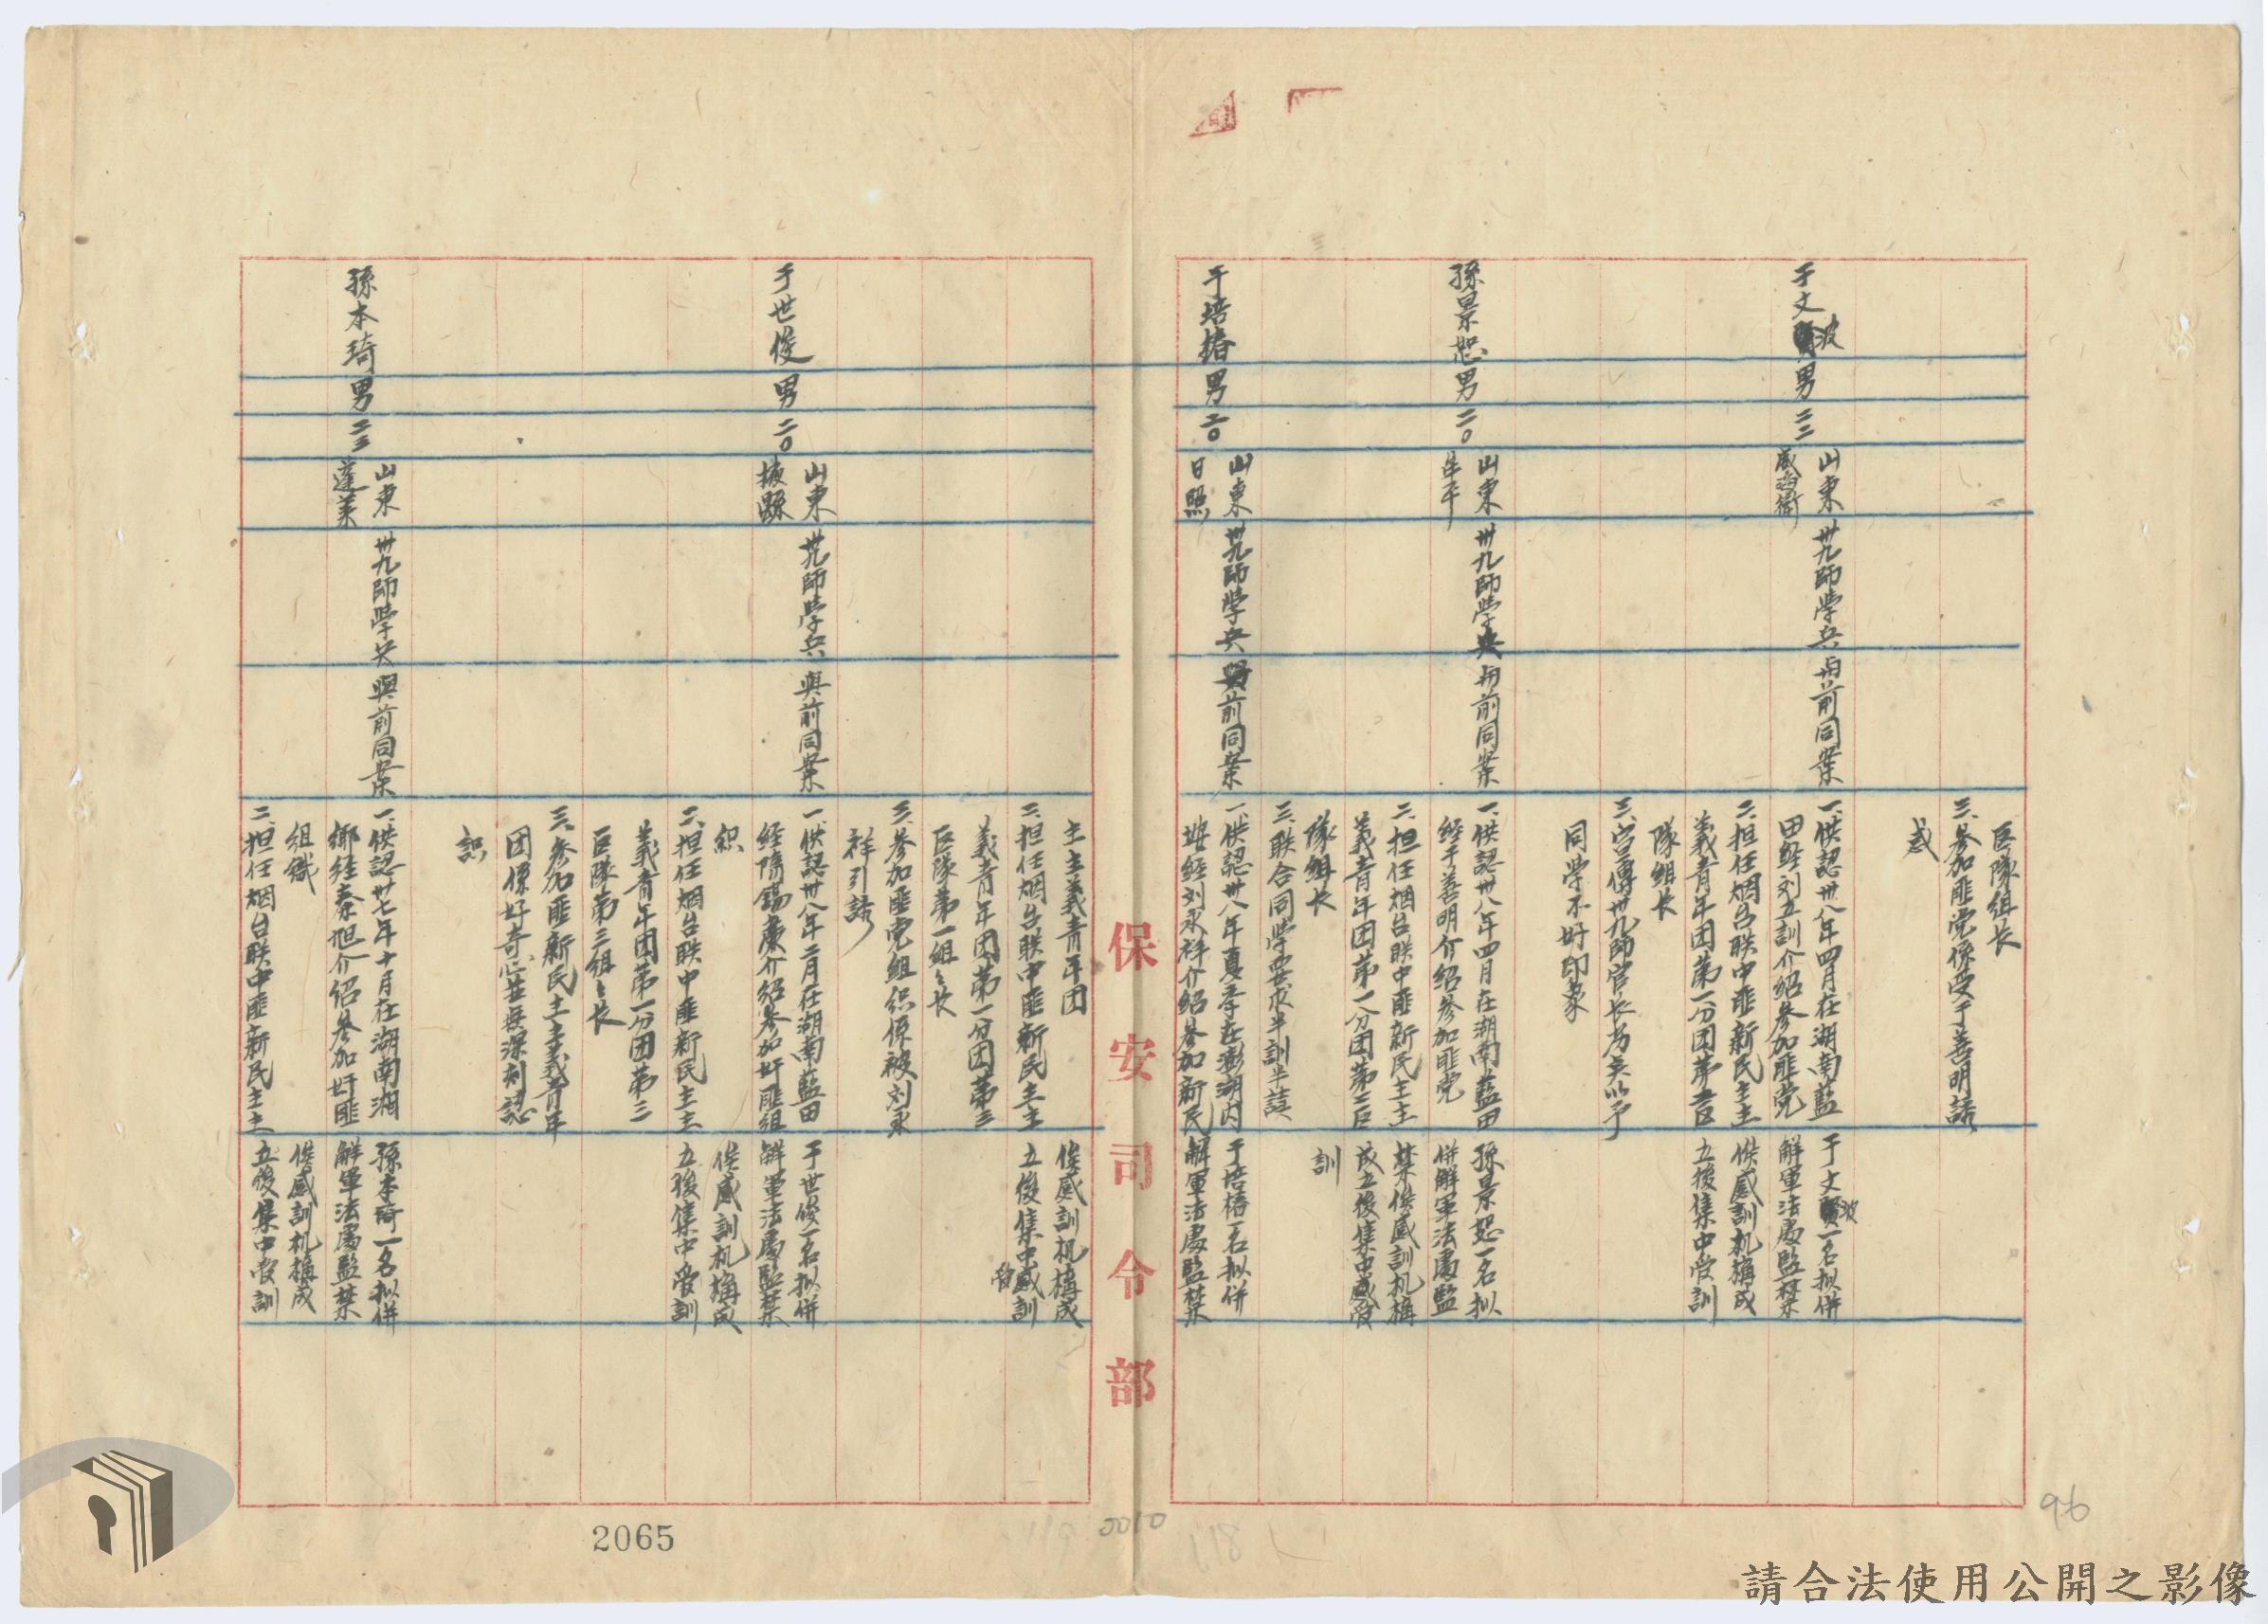 區隊組长
三、参加匪党係受于善明誘
惑
于文波
男
二二
山東
威海衛
卅九師學兵
與前同案
一、供認卅八年四月在湖南藍
田經刘立訓介紹参加匪党
二、担任烟台联中匪新民主主
義青年团第一分团第
隊組长
三、宣傳卅九師官长为夫以予
同学不好印象
于文波一名拟併
解軍法處監禁
俟感訓机構成
立後集中受訓
孫景恕
男
二〇
山東
牟平
卅九師學兵
與前同案
一、供認卅八年四月在湖南藍田
經于善明介紹参加匪党
二、担任烟台联中匪新民主主
義青年团第一分团第二區
隊組长
三、联合同學要求半訓半讀
孫景恕一名拟
併解軍法處監
禁俟感訓机構
成立後集中受
訓
于培椿
男
二〇
山東
日照
卅九師學兵
與前同案
一、供認卅八年夏季在澎湖内
垵經刘永祥介紹参加新民
主主義青年团
二、担任烟台联中匪新民主主
義青年团第一分团第三
區隊第一組組长
三、参加匪党組织係被刘永
祥引誘
于培椿一名拟併
解軍法處監禁
俟感訓机構成
立後集中受訓
于世俊
男
二〇
山東
掖縣
卅九師學兵
與前同案
一、供認卅八年二月在湖南藍田
經隋錫康介紹参加奸匪組
織
二、担任烟台联中匪新民主主
義青年团第一分团第三
區隊第三組組长
三、参加匪新民主主義青年
团係好奇心並無深刻認
识
于世俊一名拟併
解軍法處監禁
俟感訓机構成
立後集中受訓
孫本琦
男
二三
山東
蓬萊
卅九師學兵
與前同案
一、供認卅七年十月在湖南湘
鄉經秦旭介紹参加奸匪
組織
二、担任烟台联中匪新民主主
孫本琦一名拟併
解軍法處監禁
俟感訓机構成
立後集中受訓
保安司令部
2065
0010
96
請合法使用公開之影像